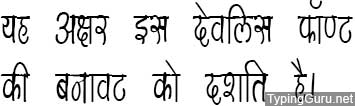 यह अक्षर इस देवलिस फॉण्ट
की बनावट को दर्शाते है।
TypingGuru.net